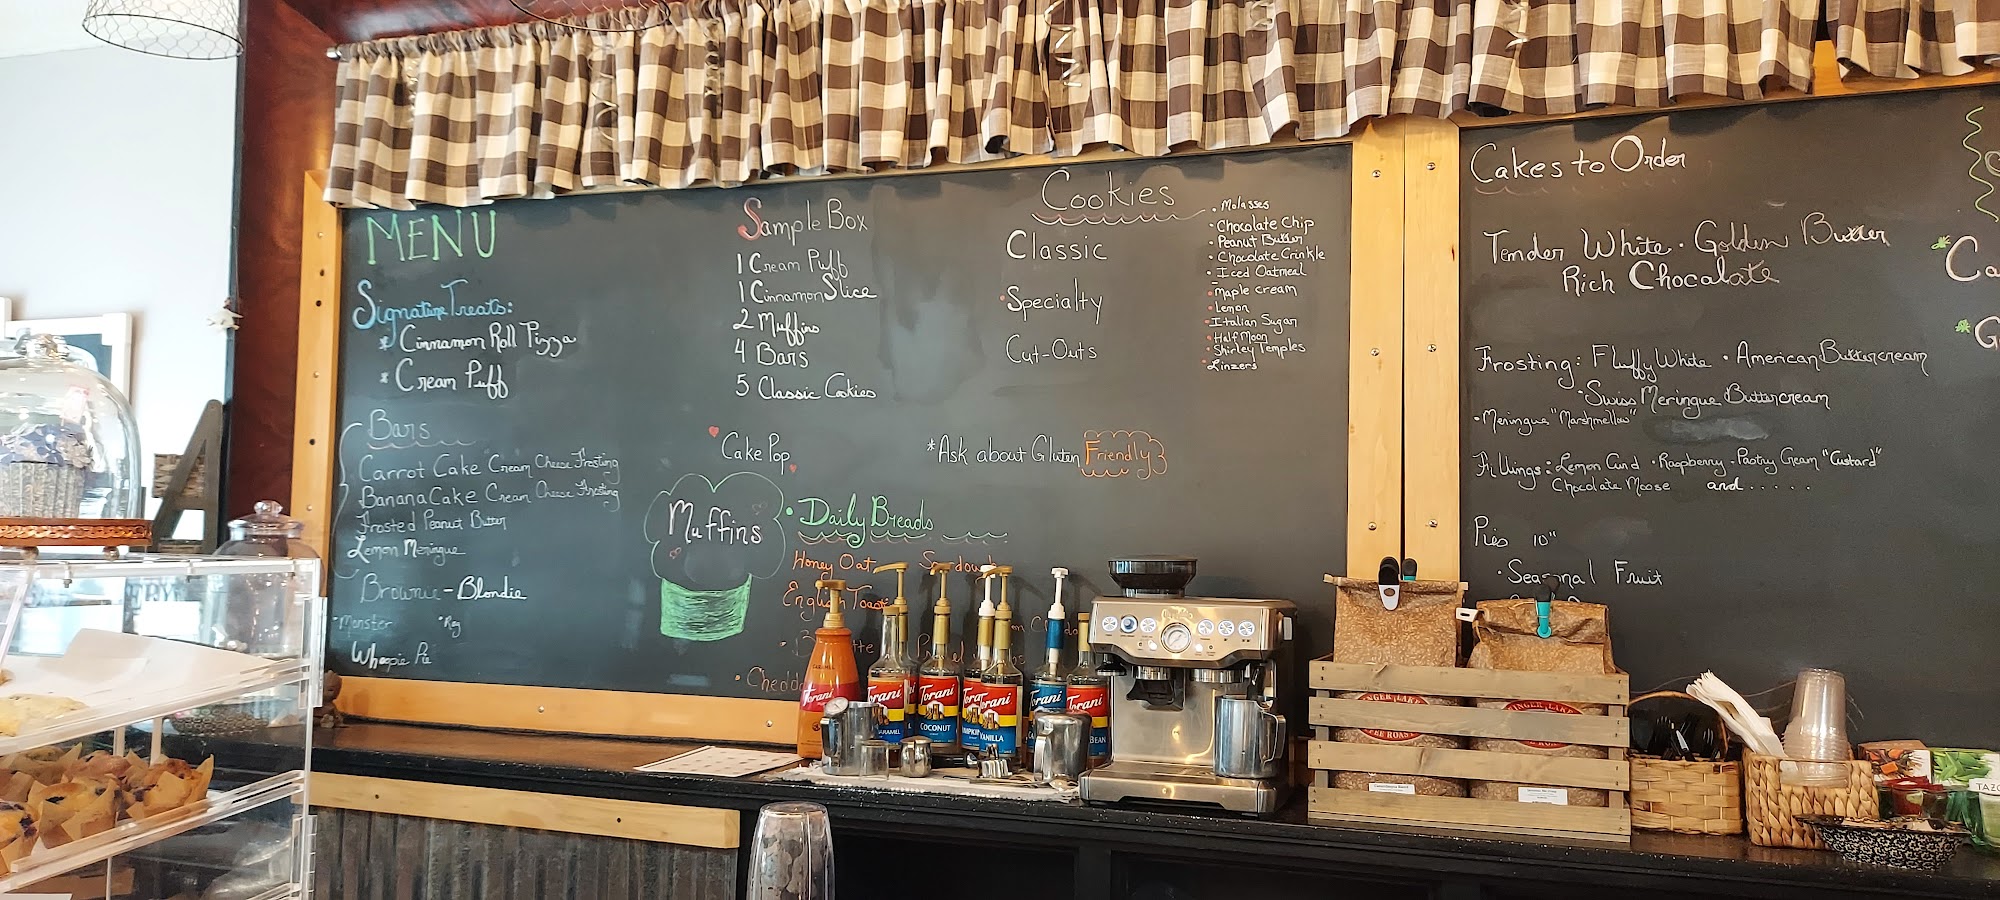 MENU
Signature Treats:
* Cinnamon Roll Pizza
* Cream Puff
Bars
Carrot Cake Cream Cheese Frosting
Banana Cake Cream Cheese Frosting
Frosted Peanut Butter
Lemon Meringue
Brownie - Blondie
• Monster • Reg
Whoopie Pie
Sample Box
1 Cream Puff
1 Cinnamon Slice
2 Muffins
4 Bars
5 Classic Cookies
Cake Pop
Muffins
Cookies
Classic
• Specialty
Cut-Outs
• Molasses
• Chocolate Chip
• Peanut Butter
• Chocolate Crinkle
• Iced Oatmeal
• Maple Cream
• Lemon
• Italian Sugar
• Half Moon
• Shirley Temples
• Linzers
* Ask about Gluten Friendly
• Daily Breads
Honey Oat
English Toast
Cakes to Order
Tender White • Golden Butter
Rich Chocolate
Frosting: Fluffy White • American Buttercream
• Swiss Meringue Buttercream
• Meringue "Marshmellow"
Fillings: Lemon Curd • Raspberry • Pastry Cream "Custard"
Chocolate Moose and.....
Pies 10"
• Seasonal Fruit
Torani
Torani
Torani
COCONUT
Torani
VANILLA
Torani
Torani
BEAN